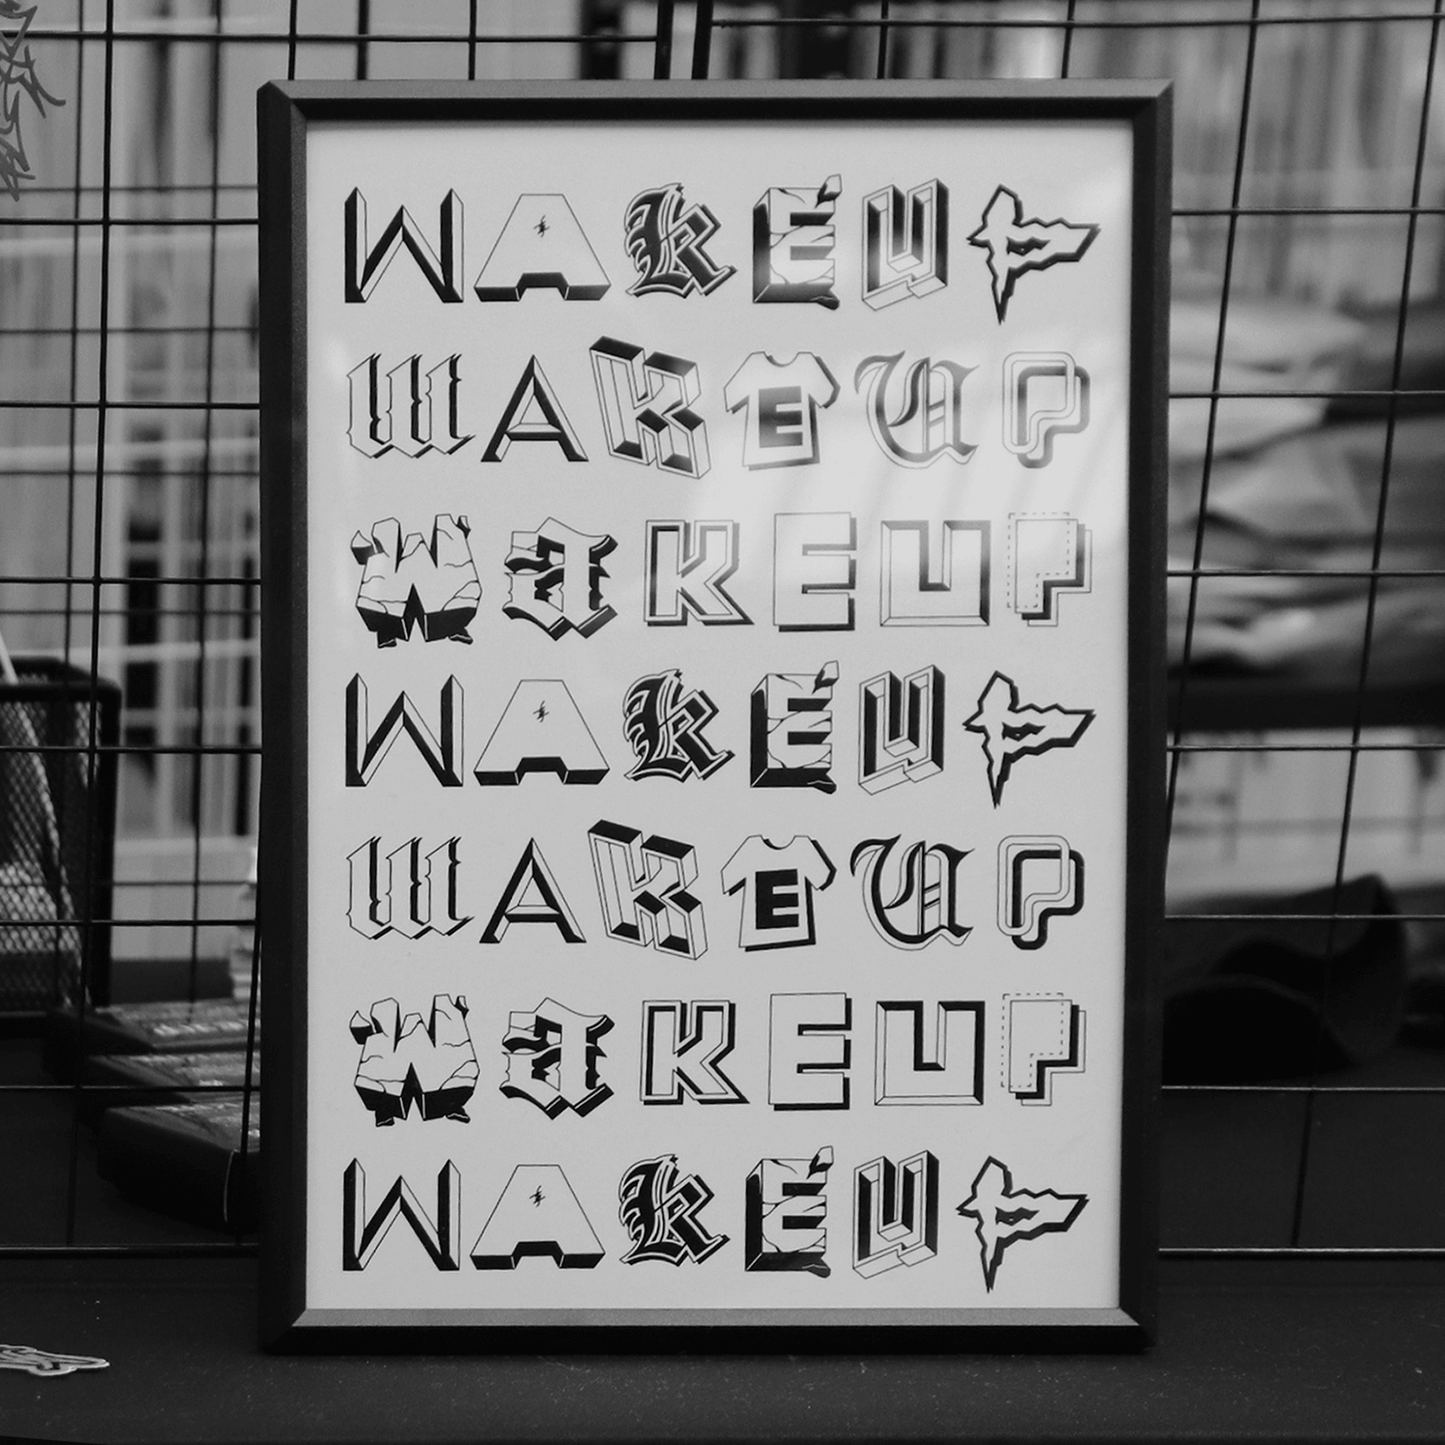 WAKE UP
WAKE UP
WAKE UP
WAKE UP
WAKE UP
WAKE UP
WAKE UP